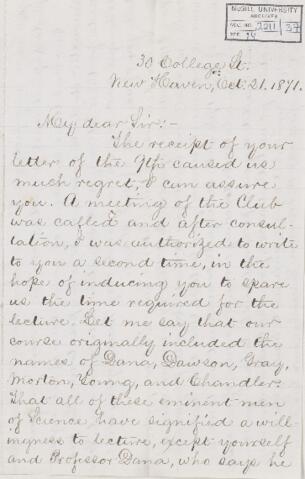 McGILL UNIVERSITY
ARCHIVES
ACC. NO. 2211
REF. 37
30 College St.
New Haven, Oct. 21. 1871.
My dear Sir:-
The receipt of your
letter of the 9th caused us
much regret, I can assure
you. A meeting of the Club
was called and after consul-
tation, I was authorized to write
to you a second time, in the
hope of inducing you to spare
us the time required for the
lecture. Let me say that our
course originally included the
names of Dana, Dawson, Gray,
Morton, Young, and Chandler.
That all of these eminent men
of Science have signified a will-
ingness to lecture, except yourself
and Professor Dana, who says he